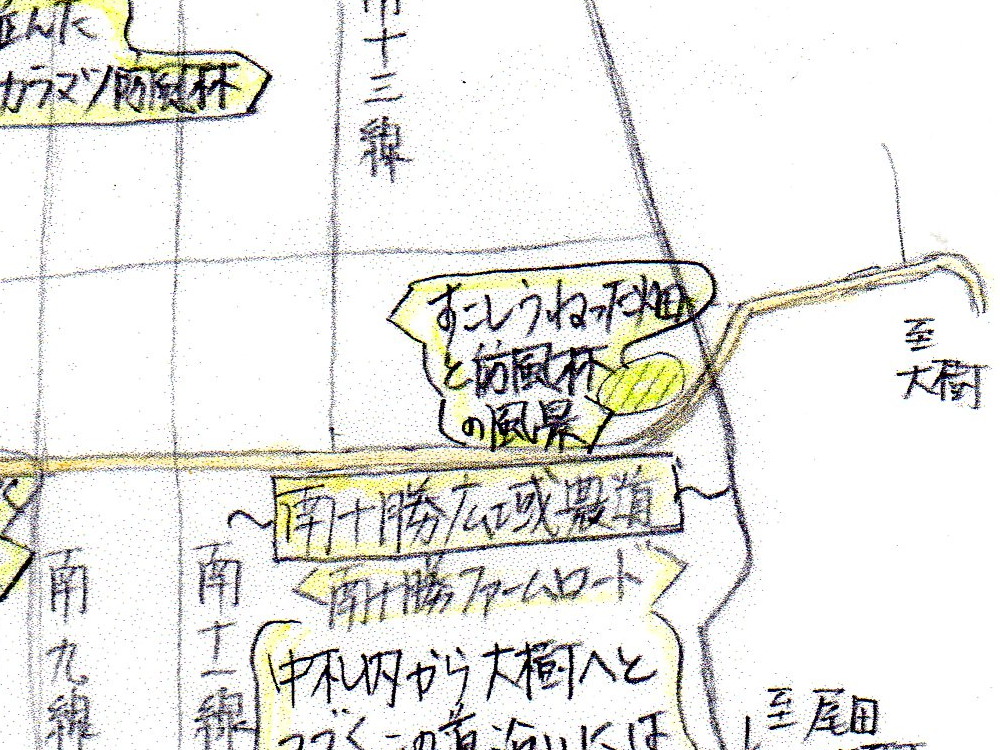 並んだ
カラマツ防風林
南十三線
すこしうねった畑
と防風林
の風景
至
大樹
南十勝広域農道
南十勝ファームロード
南九線
南十一線
中札内から大樹へと
つづくこの道沿いには
至尾田